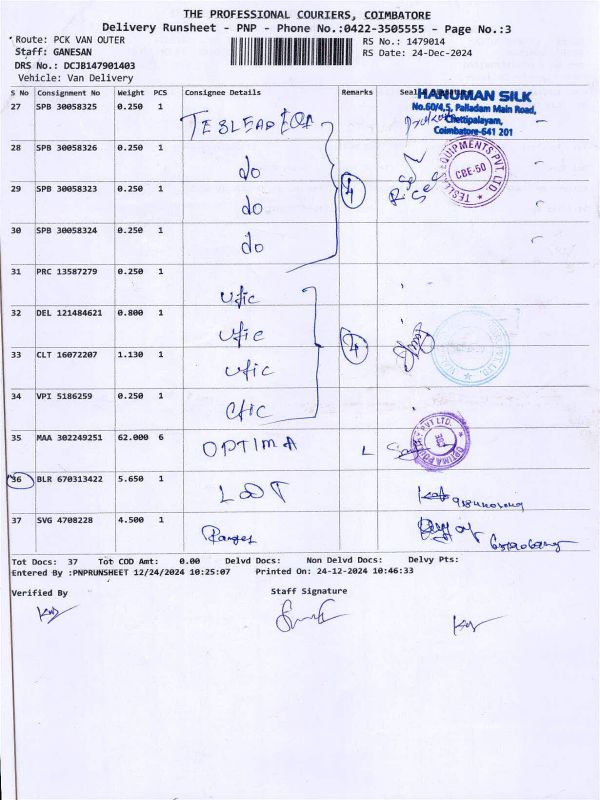 THE PROFESSIONAL COURIERS, COIMBATORE
Delivery Runsheet - PNP - Phone No.:0422-3505555 - Page No.:3
Route: PCK VAN OUTER
RS No.: 1479014
Staff: GANESAN
RS Date: 24-Dec-2024
DRS No.: DCJB147901403
Vehicle: Van Delivery
S No Consignment No Weight PCS Consignee Details Remarks
HANUMAN SILK
No.60/4,5, Palladam Main Road,
Chettipalayam,
Coimbatore-641 201
27 SPB 30058325 0.250 1
28 SPB 30058326 0.250 1 do
29 SPB 30058323 0.250 1 do 4
30 SPB 30058324 0.250 1 do
EQUIPMENTS PVT. LTD
CBE-50
31 PRC 13587279 0.250 1 Ufic
32 DEL 121484621 0.800 1 Ufic
33 CLT 16072207 1.130 1 Ufic 4
34 VPI 5186259 0.250 1
35 MAA 302249251 62.000 6 OPTIMA
36 BLR 670313422 5.650 1
37 SVG 4708228 4.500 1
Tot Docs: 37 Tot COD Amt: 0.00 Delvd Docs: Non Delvd Docs: Delvy Pts:
Entered By :PNPRUNSHEET 12/24/2024 10:25:07 Printed On: 24-12-2024 10:46:33
Verified By Staff Signature